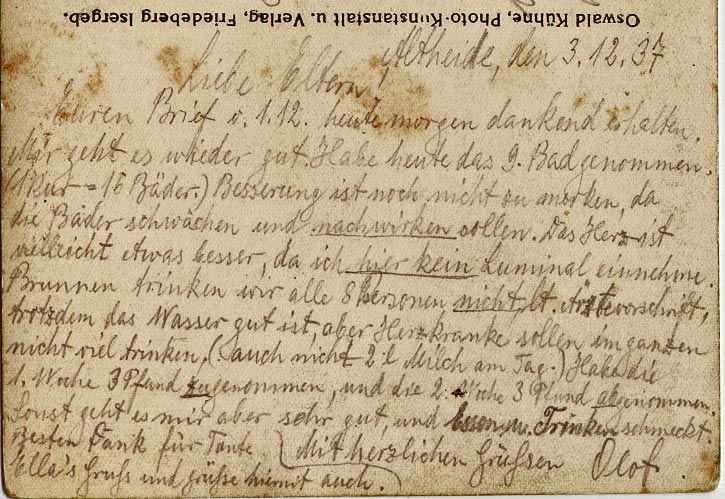 Oswald Kühne, Photo-Kunstanstalt u. Verlag, Friedeberg Isergeb.
Altheide, den 3.12.37
Liebe Eltern!
Euren Brief v. 1.12. heute morgen dankend erhalten.
Mir geht es wieder gut. Habe heute das 9. Bad genommen.
(1 Kur = 16 Bäder.) Besserung ist noch nicht zu merken, da
die Bäder schwächen und nachwirken sollen. Das Herz ist
vielleicht etwas besser, da ich hier kein Luminal einnehme.
Brunnen trinken wir alle 8 Personen nicht, lt. Ärztevorschrift,
trotzdem das Wasser gut ist, aber Herzkranke sollen im ganzen
nicht viel trinken. (auch nicht 2 l Milch am Tag.) Habe die
1. Woche 3 Pfund zugenommen, und die 2. Woche 3 Pfund abgenommen.
Sonst geht es mir aber sehr gut, und Essen u. Trinken schmeckt.
Besten Dank für Tante
Ella's Gruß und grüße hiermit auch.
Mit herzlichen Grüßen Olof.